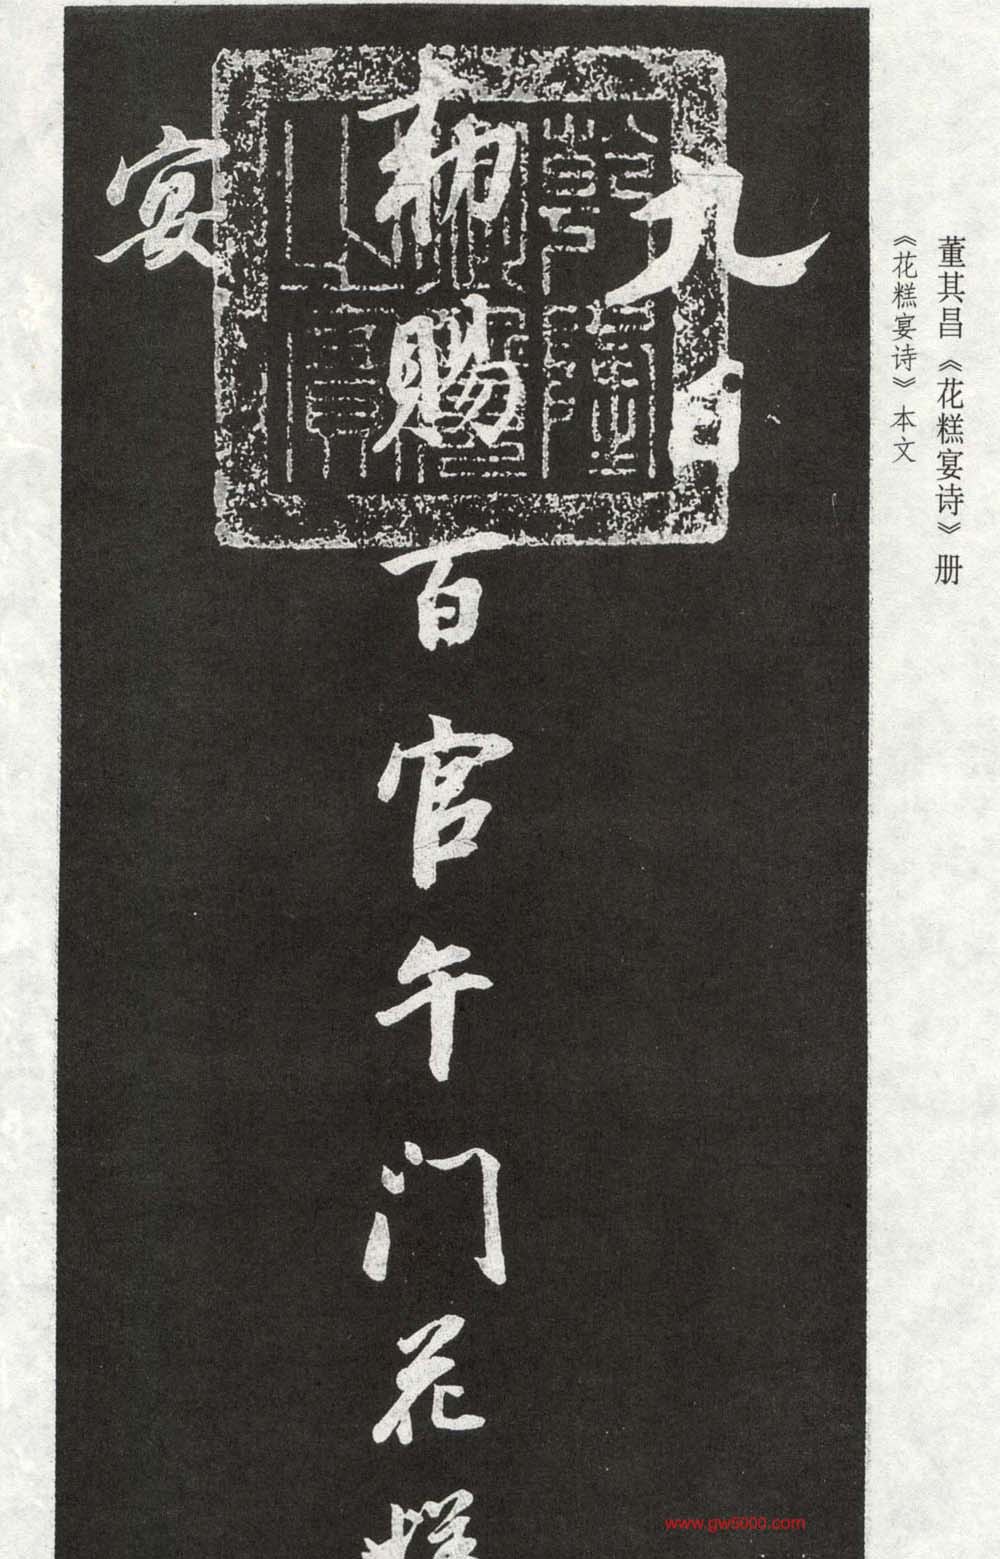 董其昌《花糕宴诗》册
《花糕宴诗》本文
九日
敕赐百官午门花糕
宴
www.gw5000.com